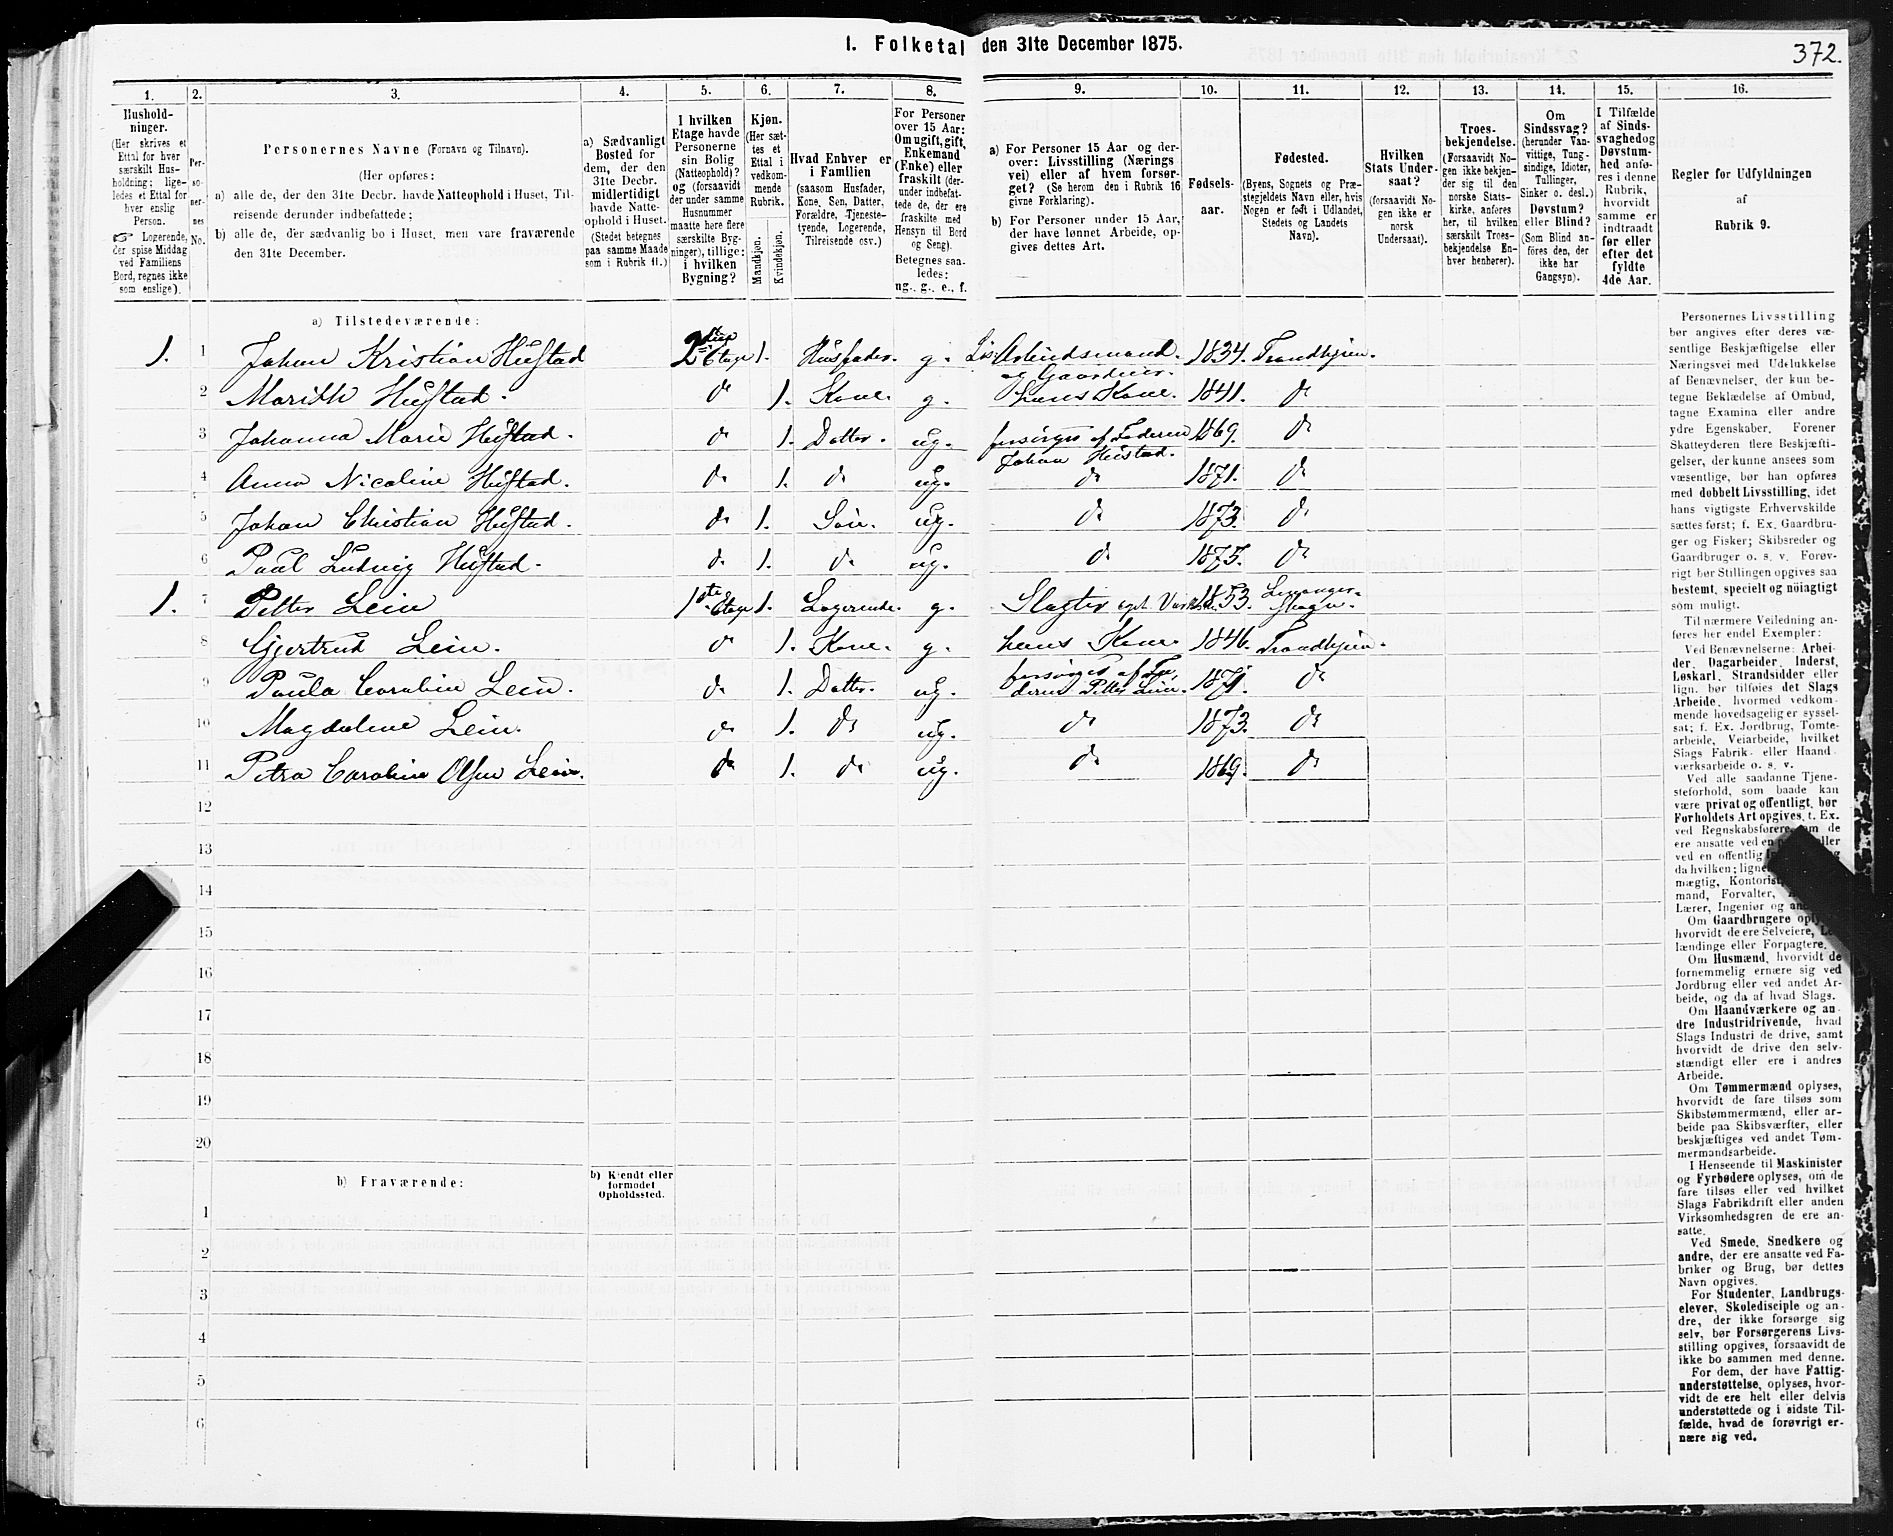 1. Folketal den 31te December 1875.
372.
1.
2.
3.
4.
5.
6.
7.
8.
9.
10.
11.
12.
13.
14.
15.
16.
Hushold-
ninger.
(Her skrives et
Ettal for hver
særskilt Hus-
holdning; lige-
ledes et Ettal for
hver enslig
Person.
☞ Logerende,
der spise Middag
ved Familiens
Bord, regnes ikke
som enslige).
Per-
so-
ner-
nes
No.
Personernes Navne (Fornavn og Tilnavn).
(Her opføres:
a) alle de, der den 31te Decbr. havde Natteophold i Huset, Til-
reisende derunder indbefattede;
b) alle de, der sædvanlig bo i Huset, men vare fraværende
den 31te December.
a) Sædvanligt
Bosted for
dem, der den
31te Decbr.
midlertidigt
havde Natte-
ophold i Huset.
(Stedet betegnes
paa samme Maade
som i Rubrik 11.)
I hvilken
Etage havde
Personerne
sin Bolig
(Natteophold)?
og (forsaavidt
der under samme
Husnummer
maatte høre flere
særskilte Byg-
ninger), tillige:
i hvilken
Bygning?
Kjøn.
(Her sæt-
tes et
Ettal i
vedkom-
mende
Rubrik.
Mandkjøn.
Kvindekjøn.
Hvad Enhver er
i Familien
(saasom Husfader,
Kone, Søn, Datter,
Forældre, Tjeneste-
tyende, Logerende,
Tilreisende osv.)
For Personer
over 15 Aar:
Om ugift, gift,
Enkemand
(Enke) eller
fraskilt (der-
under indbefat-
tede de, der ere
fraskilte med
Hensyn til Bord
og Seng).
Betegnes saa-
ledes:
ug., g., e., f.
a) For Personer 15 Aar og der-
over: Livsstilling (Nærings
vei) eller af hvem forsør-
get? (Se herom den i Rubrik 16
givne Forklaring).
b) For Personer under 15 Aar,
der have lønnet Arbeide, op-
gives dettes Art.
Fødsels-
aar.
Fødested.
(Byens, Sognets og Præ-
stegjeldets Navn eller, hvis
Nogen er født i Udlandet,
Stedets og Landets
Navn).
Hvilken
Stats Under-
saat?
(forsaavidt No-
gen ikke er
norsk
Undersaat).
Troes-
bekjendelse.
(Forsaavidt No-
gen ikke bekjen-
der sig til den
norske Stats-
kirke, anføres
her, til hvilken
særskilt Troes-
bekjendelse En-
hver henhører).
Om
Sindssvag?
(herunder Van-
vittige, Tung-
sindige, Idioter,
Tullinger,
Sinker o. desl.)
Døvstum?
eller Blind?
(Som Blind an-
føres den, der
ikke har
Gangsyn).
I Tilfælde
af Sinds-
svaghed og
Døvstum-
hed anfø-
res i denne
Rubrik,
hvorvidt
samme er
indtraadt
før eller
efter det
fyldte
4de Aar.
Regler for Udfyldningen
af
Rubrik 9.
a) Tilstedeværende:
1. 1 Johan Kristian Hustad 2 Etage 1. Husfader. g. Arbeidsmand. 1834. Trondhjem.
og Gaardeier.
2 Marith Hustad. do 1. Kone. g. hans Kone. 1841. do
3 Johanna Marie Hustad. do 1. Datter. ug. forsörges af Faderen 1869. do
Johan Hustad.
4 Anna Nicoline Hustad. do 1. do ug. do 1871. do
5 Johan Christian Hustad. do 1. Sön. ug. do 1873. do
6 Paul Ludvig Hustad. do 1. do ug. do 1875. do
1. 7 Petter Lein 1ste Etage 1. Logerende. g. Slagter 1853.
8 Gjertrud Lein. do 1. Kone. g. hans Kone 1846. Trondhjem.
9 Paula Caroline Lein. do 1. Datter. ug. forsörges af Fa-
deren Petter Lein. 1871. do
10 Magdalene Lein. do 1. do ug. do 1873. do
11 Petra Caroline Olsen Lein. do 1. do ug. do 1869. do
12
13
14
15
16
17
18
19
20
b) Fraværende:
b) Kjendt eller
formodet
Opholdssted.
1
2
3
4
5
6
Personernes Livsstilling
bør angives efter deres væ-
sentlige Beskjæftigelse eller
Næringsvei med Udelukkelse
af Benævnelser, der kun be-
tegne Beklædelse af Ombud,
tagne Examina eller andre
ydre Egenskaber. Forener
Skatteyderen flere Beskjæfti-
gelser, der kunne ansees som
væsentlige, bør han opføres
med dobbelt Livsstilling, idet
hans vigtigste Erhvervskilde
sættes først; f. Ex. Gaardbru-
ger og Fisker; Skibsreder og
Gaardbruger o. s. v. Forøv-
rigt bør Stillingen opgives saa
bestemt, specielt og nøiagtigt
som muligt.
Til nærmere Veiledning an-
føres her endel Exempler:
Ved Benævnelserne: Arbei-
der, Dagarbeider, Inderst,
Løskarl, Strandsidder eller
lign. bør tilføies det Slags
Arbeide, hvormed vedkom-
mende hovedsagelig er syssel-
sat; f. Ex. Jordbrug, Tomte-
arbeide, Veiarbeide, hvilket
Slags Fabrik- eller Haand-
værksarbeide o. s. v.
Ved alle saadanne Tjene-
steforhold, som baade kan
være privat og offentligt, bør
Forholdets Art opgives, t. Ex.
ved Regnskabsførere, om de
ere ansatte ved en
ved en offentlig
da hvilken;
mægtig, Kontorist,
mand, Forvalter,
Lærer, Ingeniør og
Om Gaardbrugere
hvorvidt de ere Selveiere,
lændinge eller Forpagtere.
Om Husmænd, hvorvidt de
fornemmelig ernære sig ved
Jordbrug eller ved andet Ar-
beide, og da af hvad Slags.
Om Haandværkere og an-
dre Industridrivende, hvad
Slags Industri de drive, samt
hvorvidt de drive den selv-
stændigt eller ere i andres
Arbeide.
Om Tømmermænd oplyses,
hvorvidt de fare tilsøs som
Skibstømmermænd, eller ar-
beide paa Skibsværfter, eller
beskjæftiges ved andet Tøm-
mermandsarbeide.
I Henseende til Maskinister
og Fyrbødere oplyses, om de
fare tilsøs eller ved hvilket
Slags Fabrikdrift eller anden
Virksomhedsgren de ere an-
satte.
Ved Smede, Snedkere og
andre, der ere ansatte ved Fa-
briker og Brug, bør dettes
Navn opgives.
For Studenter, Landbrugs-
elever, Skoledisciple og an-
dre, der ikke forsørge sig
selv, bør Forsørgerens Livs-
stilling opgives, forsaavidt de
ikke bo sammen med denne.
For dem, der have Fattig-
understøttelse, oplyses, hvor-
vidt de ere helt eller delvis
understøttede og i sidste Til-
fælde, hvad de forøvrigt er-
nære sig ved.